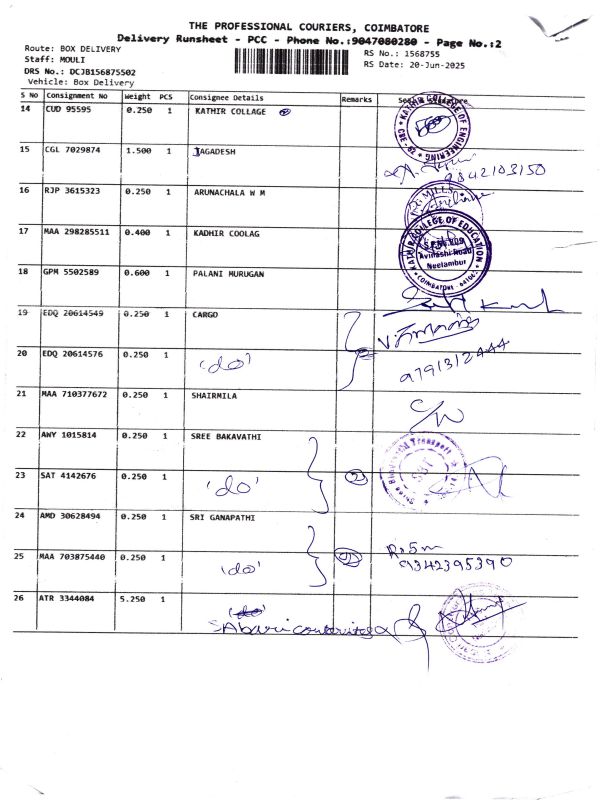 THE PROFESSIONAL COURIERS, COIMBATORE
Delivery Runsheet - PCC - Phone No.:9047080280 - Page No.:2
Route: BOX DELIVERY
RS No.: 1568755
Staff: MOULI
RS Date: 20-Jun-2025
DRS No.: DCJB156875502
Vehicle: Box Delivery
S No Consignment No Weight PCS Consignee Details Remarks
14 CUD 95595 0.250 1 KATHIR COLLAGE
KATHIR COLLEGE OF ENGINEERING
15 CGL 7029874 1.500 1 JAGADESH
9842103150
16 RJP 3615323 0.250 1 ARUNACHALA W M
MILLS
17 MAA 298285511 0.400 1 KADHIR COOLAG
KATHIR COLLEGE OF EDUCATION
Avinashi Road
Neelambur
COIMBATORE
18 GPM 5502589 0.600 1 PALANI MURUGAN
19 EDQ 20614549 0.250 1 CARGO
20 EDQ 20614576 0.250 1 'do'
9791312444
21 MAA 710377672 0.250 1 SHAIRMILA
22 AWY 1015814 0.250 1 SREE BAKAVATHI
23 SAT 4142676 0.250 1 'do' 2
SBT
24 AMD 30628494 0.250 1 SRI GANAPATHI
25 MAA 703875440 0.250 1 'do' 2
9342395390
26 ATR 3344084 5.250 1 'do'